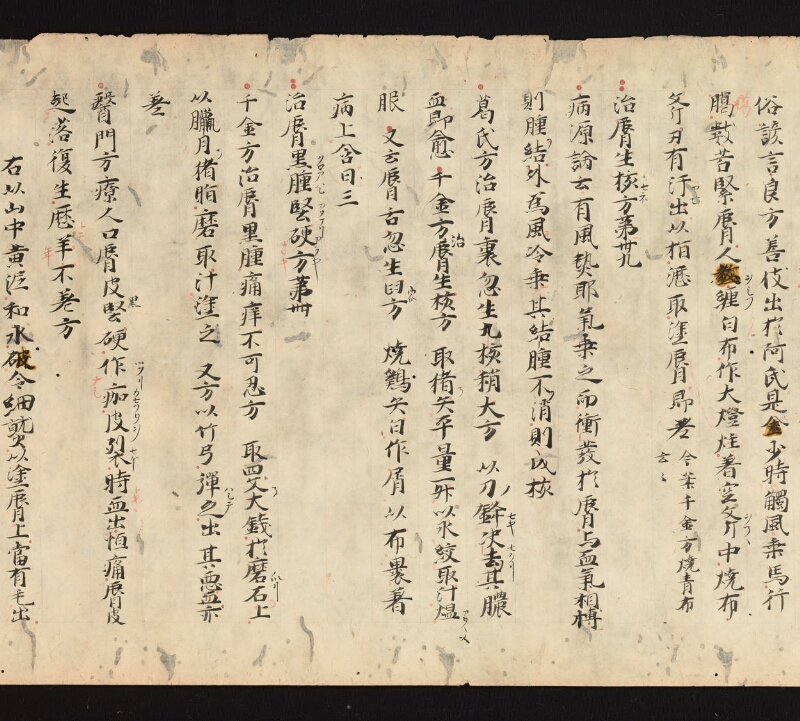 俗說言良方善伎出於阿氏是余少時觸風乗馬行
腸數苦緊脣人教纏白布作大燈炷著空斧中燒布
斧刃有汗出以指瀝取塗脣即差 今案千金方燒青布云々
治脣生核方第卅九
病源論云有風熱耶氣乗之而衝發於脣与血氣相搏
則腫結外為風冷乗其結腫不消則成核
葛氏方治脣裏忽生丸核稍大方 以刀鋒决去其膿
血即愈 千金方治脣生核方 取猪矢平量一升以水絞取汁煴
服 又云脣舌忽生 方 燒鷄矢白作屑以布裹著
病上含日三
治脣黒腫緊硬方第卌
千金方治脣黒腫痛痒不可忍方 取四文大錢於磨石上
以臘月猪脂磨取汁塗之 又方以竹弓彈之出其惡血亦
差
醫門方療人口脣皮緊黒硬作痂皮裂時血出恒痛脣皮
起落復生歴年不差方
右以山中黄泥和水破令細熟以塗脣上當有毛出